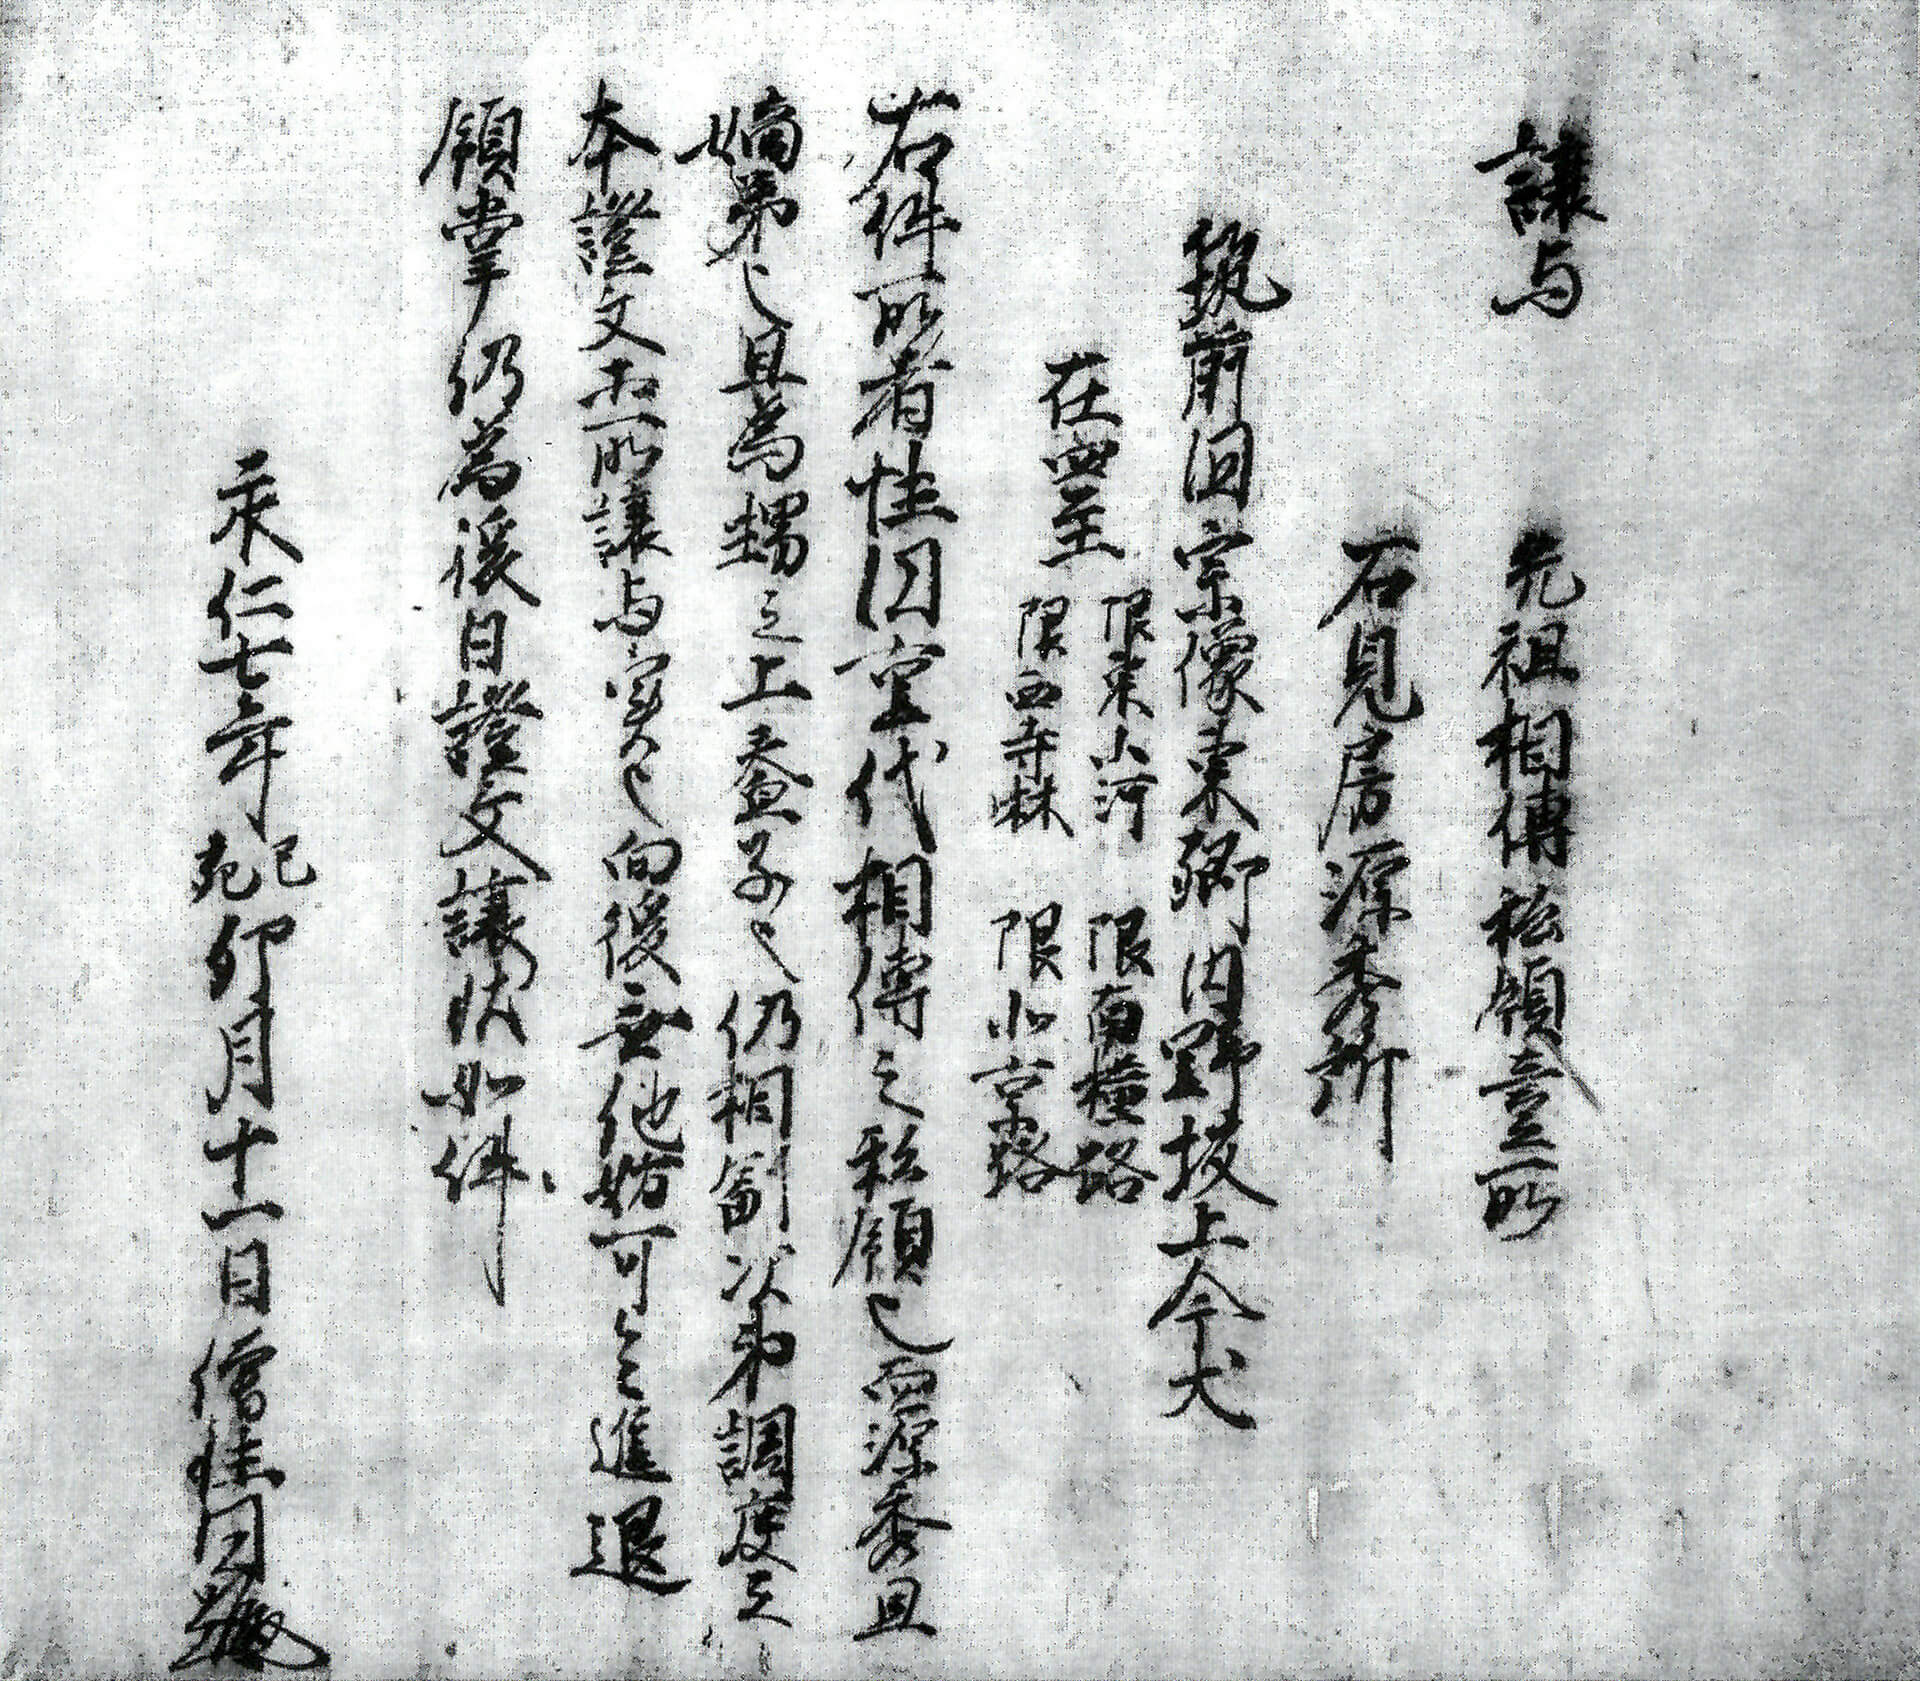 讓与　先祖相傳私領壹所
石見房源秀所
筑前国宗像東郷内野坂上今犬
在四至　限東小河　限南横路
限西寺林　限北古路
右件所者性因重代相傳之私領也而源秀且
嫡弟也且為甥之上養子也仍相副次第調度之
本證文等所讓与実也向後無他妨可令進退
領掌仍為後日證文讓状如件
永仁七年己亥卯月十一日僧性因